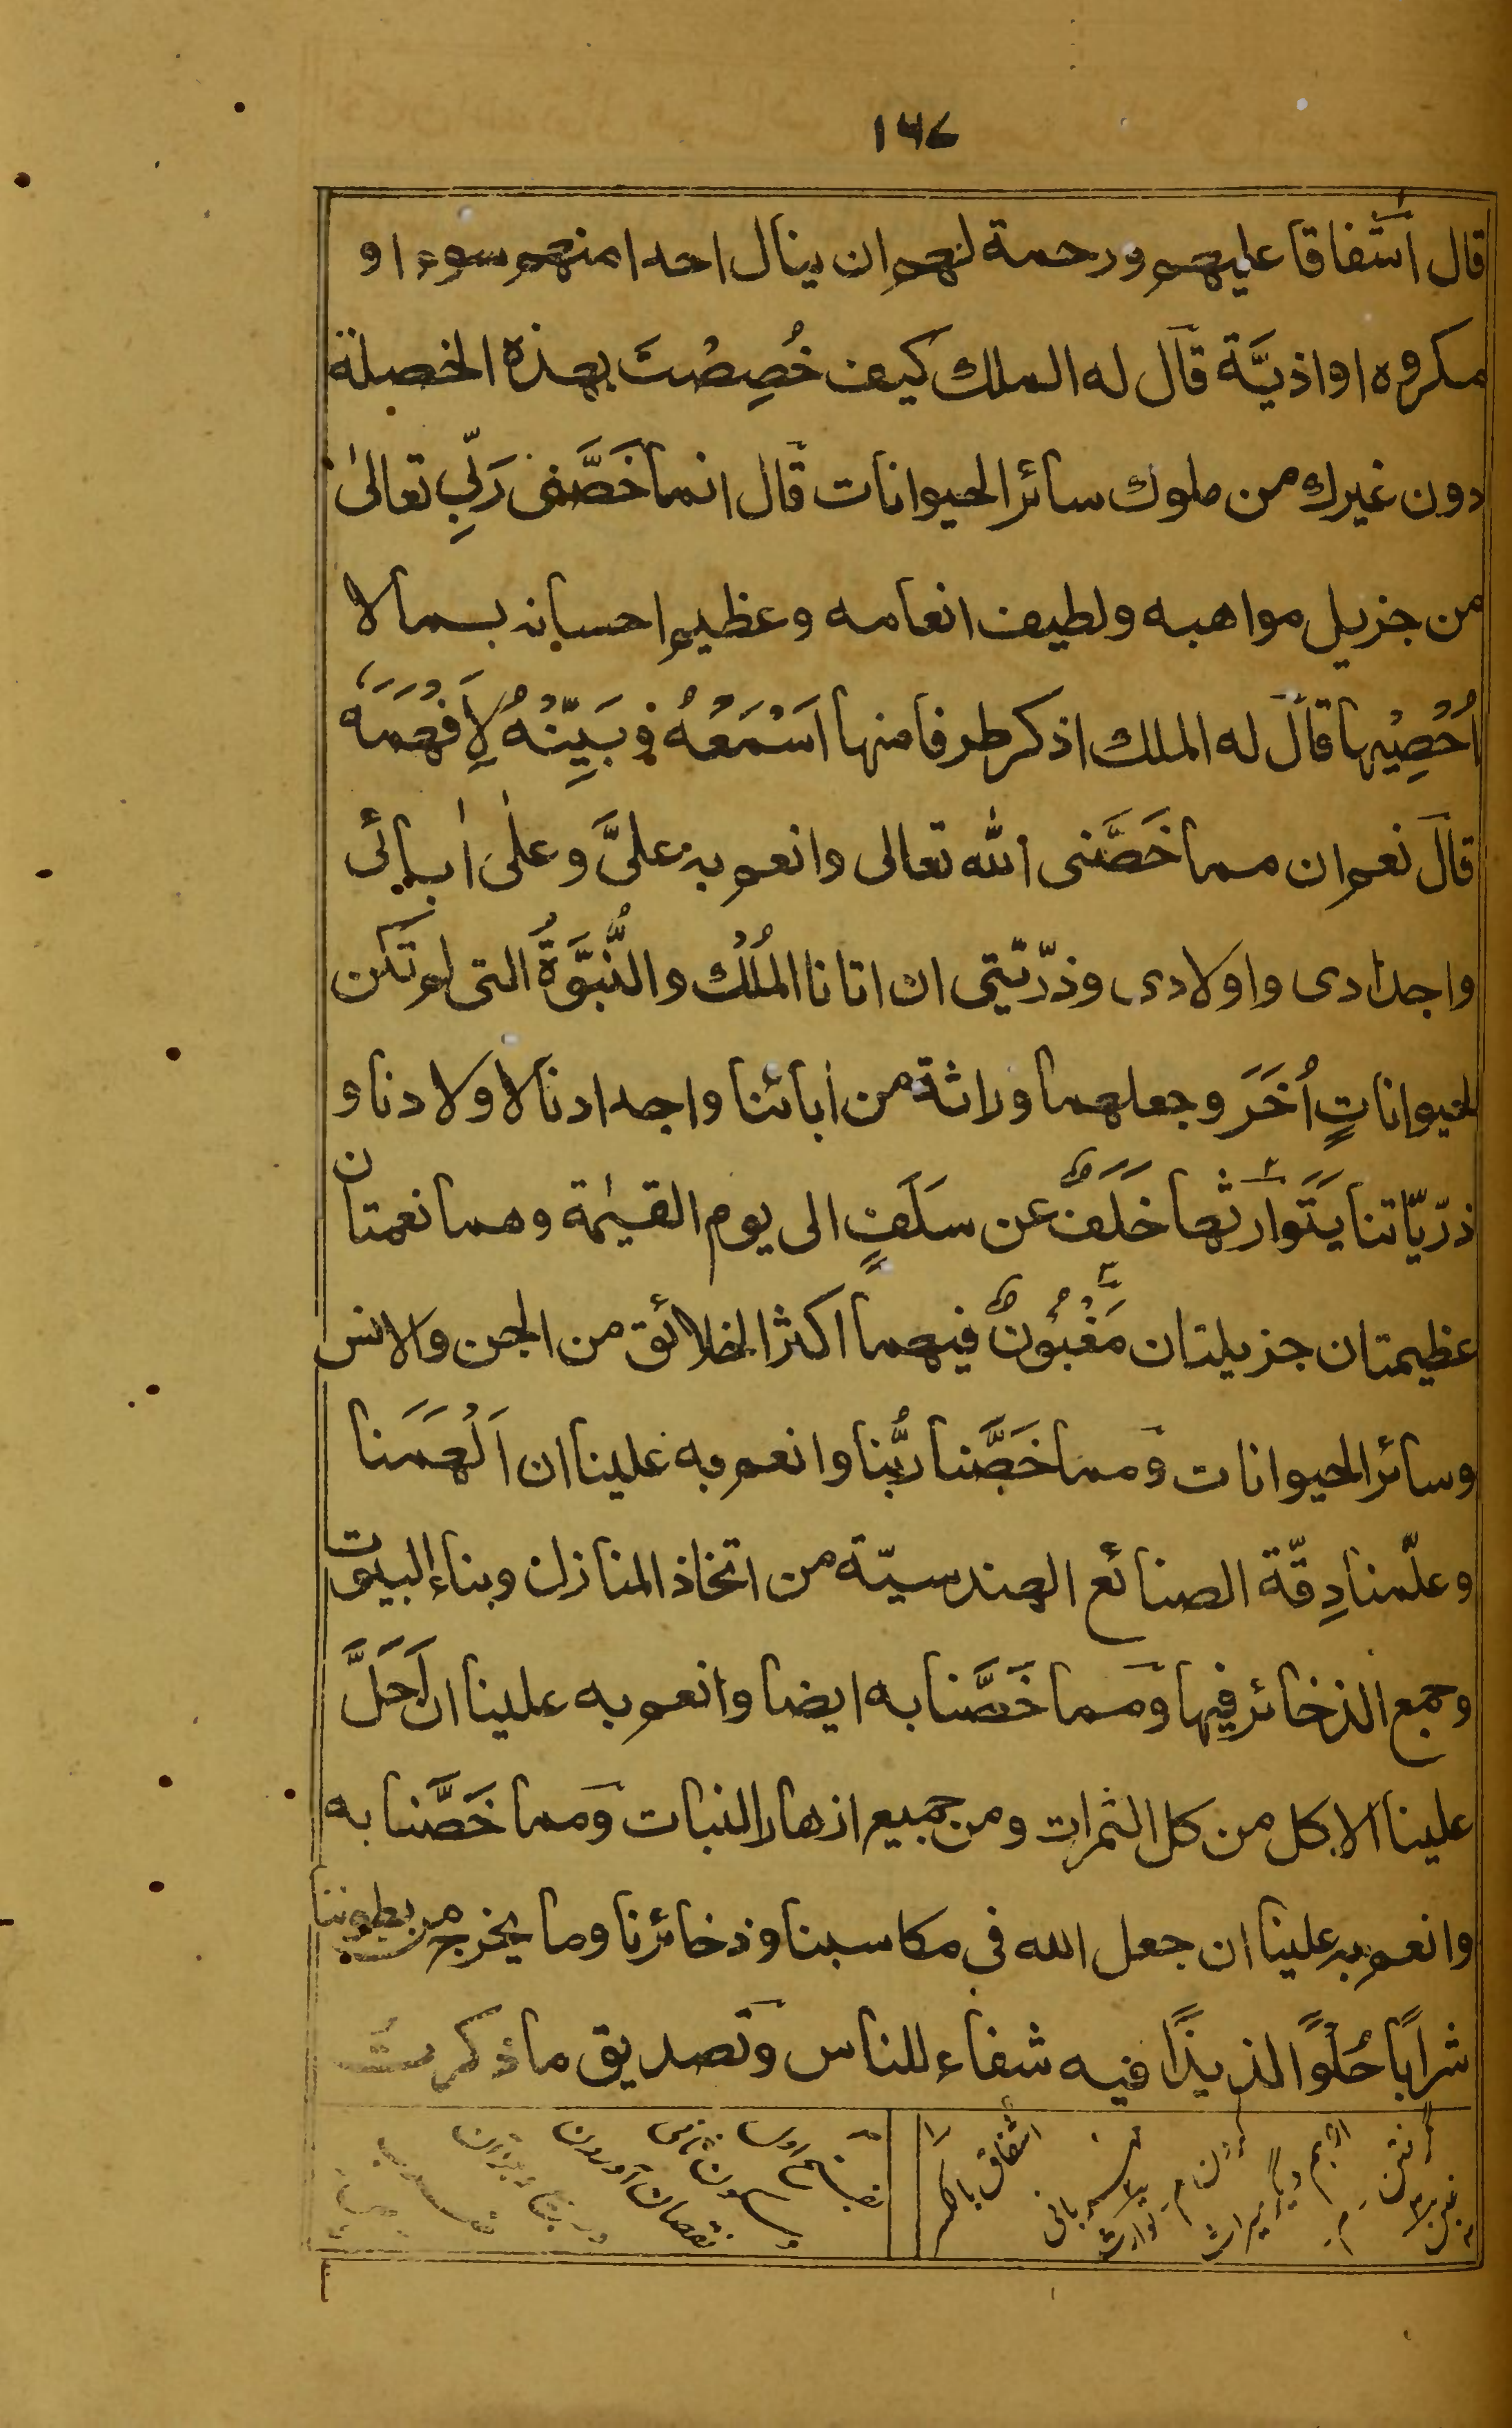 ١٤٧
قال اشفاقا عليهم ورحمة لهم ان ينال احدا منهم سوء او
مكروه او اذيَّة قال له الملك كيف خُصِصْتَ بهذه الخصلة
دون غيرك من ملوك سائر الحيوانات قال انما خَصَّنى رَبّيِ تعالىٰ
من جزيل مواهبه ولطيف انعامه وعظيم احسانه بما لا
اُحْصِيْها قال له الملك اذكر طرفا منها اَسْمَعُهُ و بَيِّنْهُ لِاَفْهَمَهُ
قال نعم ان مما خَصَّنى الله تعالى وانعم به علىَّ وعلىٰ اٰبائى
واجدادى واولادى وذرّيّتى ان اتانا المُلْك والنُّبُوَّةَ التى لم تكن
لحيواناتٍ اُخَرَ وجعلهما وراثة من اٰبائنا واجدادنا لاولادنا و
ذرّيّاتنا يَتَوارثها خَلَفٌ عن سَلَفٍ الى يوم القيٰمة وهما نعمتان
عظيمتان جزيلتان مَغْبُوْنٌ فيهما اكثر الخلائق من الجن والانس
وسائر الحيوانات ومما خَصَّنا ربُّنا وانعم به علينا ان اَلْهَمَنا
وعلّمنا دِقّة الصنائع الهندسيّة من اتخاذ المنازل وبناء البيوت
وجمع الذخائر فيها ومما خَصَّنا به ايضا وانعم به علينا ان اَحَلَّ
علينا الاكل من كل الثمرات ومن جميع ازهار النبات ومما خَصَّنا به
وانعم به علينا ان جعل الله فى مكاسبنا وذخائرنا وما يخرج من بطوننا
شرابًا حُلْوًا لذيذًا فيه شفاء للناس وتصديق ما ذكرتُ
اشفاق باكسر